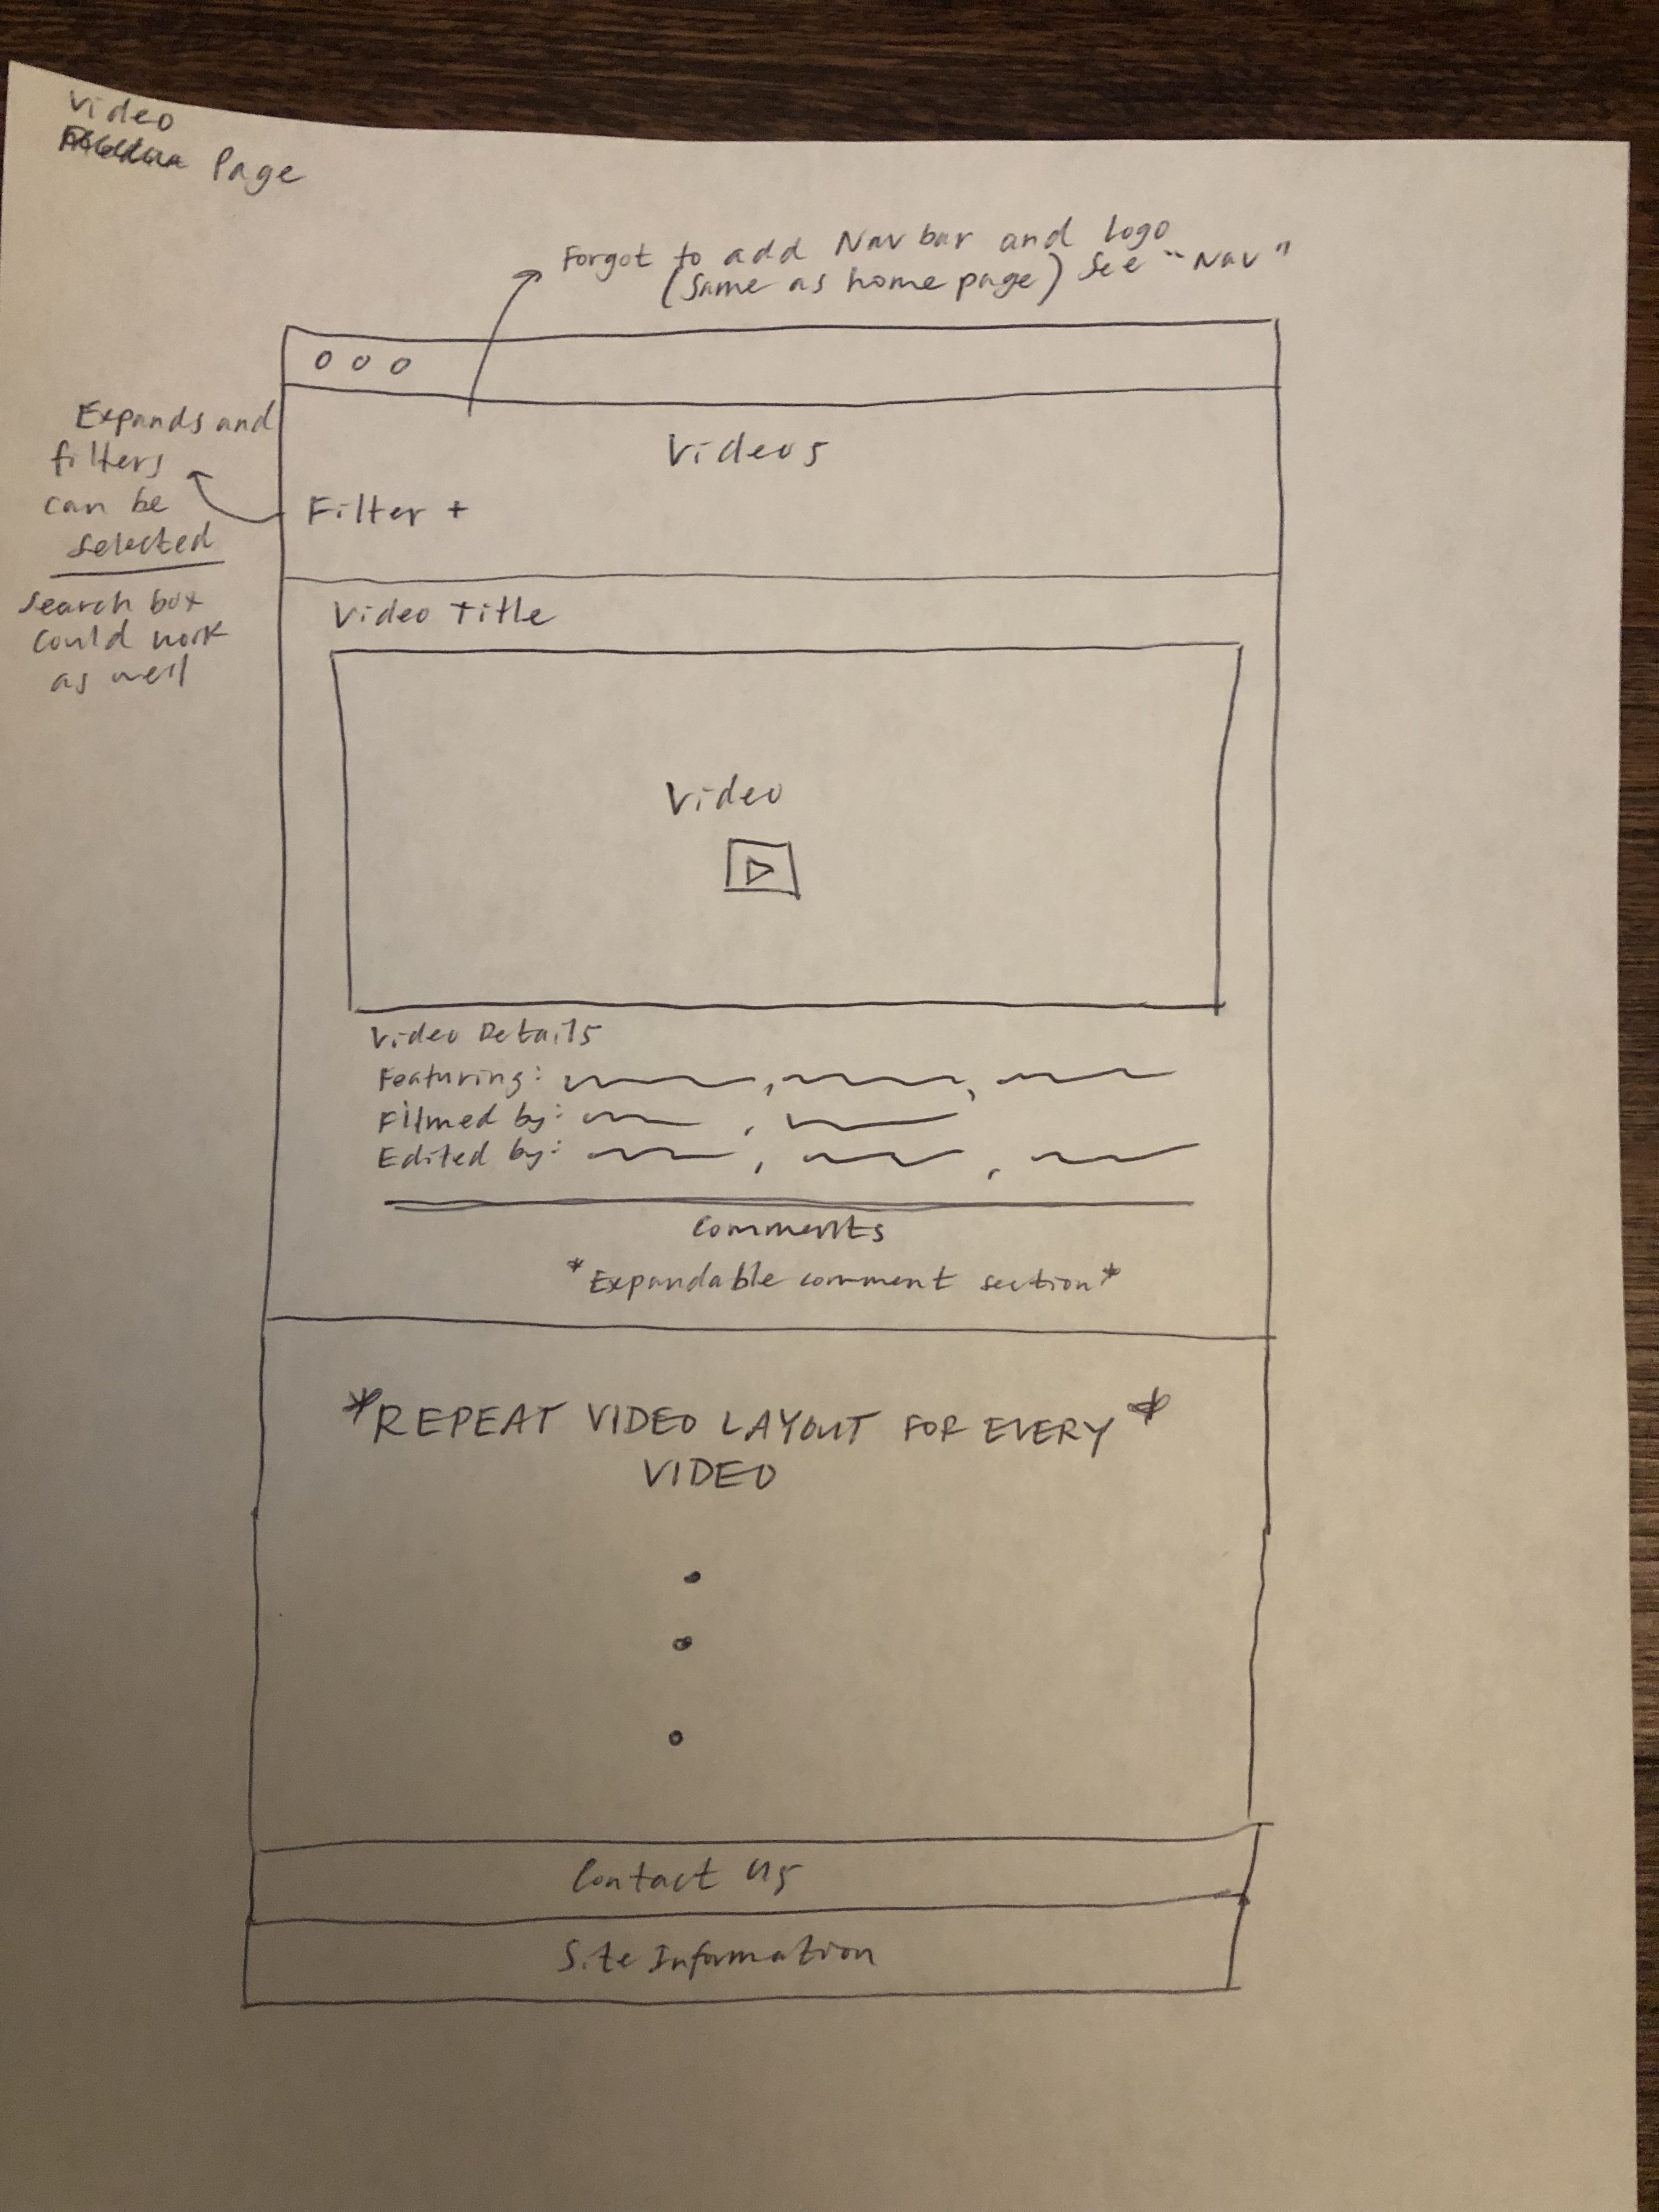 Video
Page
Forgot to add Nav bar and logo
(same as home page) see "Nav"
Expands and
filters
can be
selected
Search box
could work
as well
Videos
Filter +
Video Title
Video
Video Details
Featuring: , ,
Filmed by: ,
Edited by: , ,
Comments
*Expandable comment section*
*REPEAT VIDEO LAYOUT FOR EVERY*
VIDEO
Contact Us
Site Information